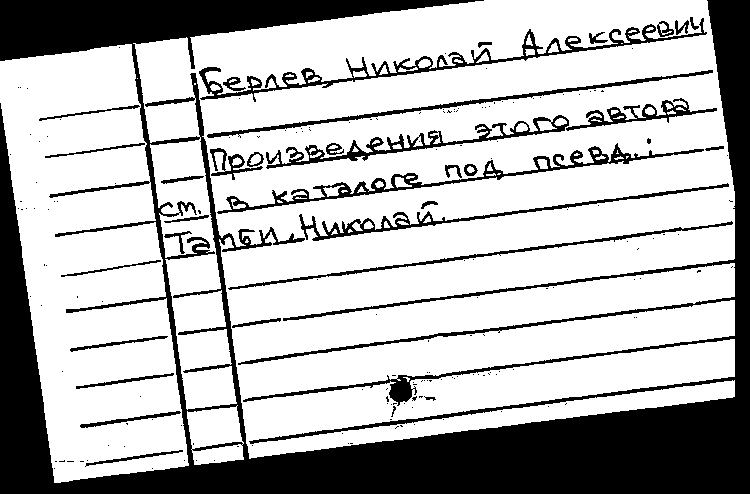 Берлев, Николай Алексеевич
Произведения этого автора
см. в каталоге под псевд.:
Тамби, Николай.